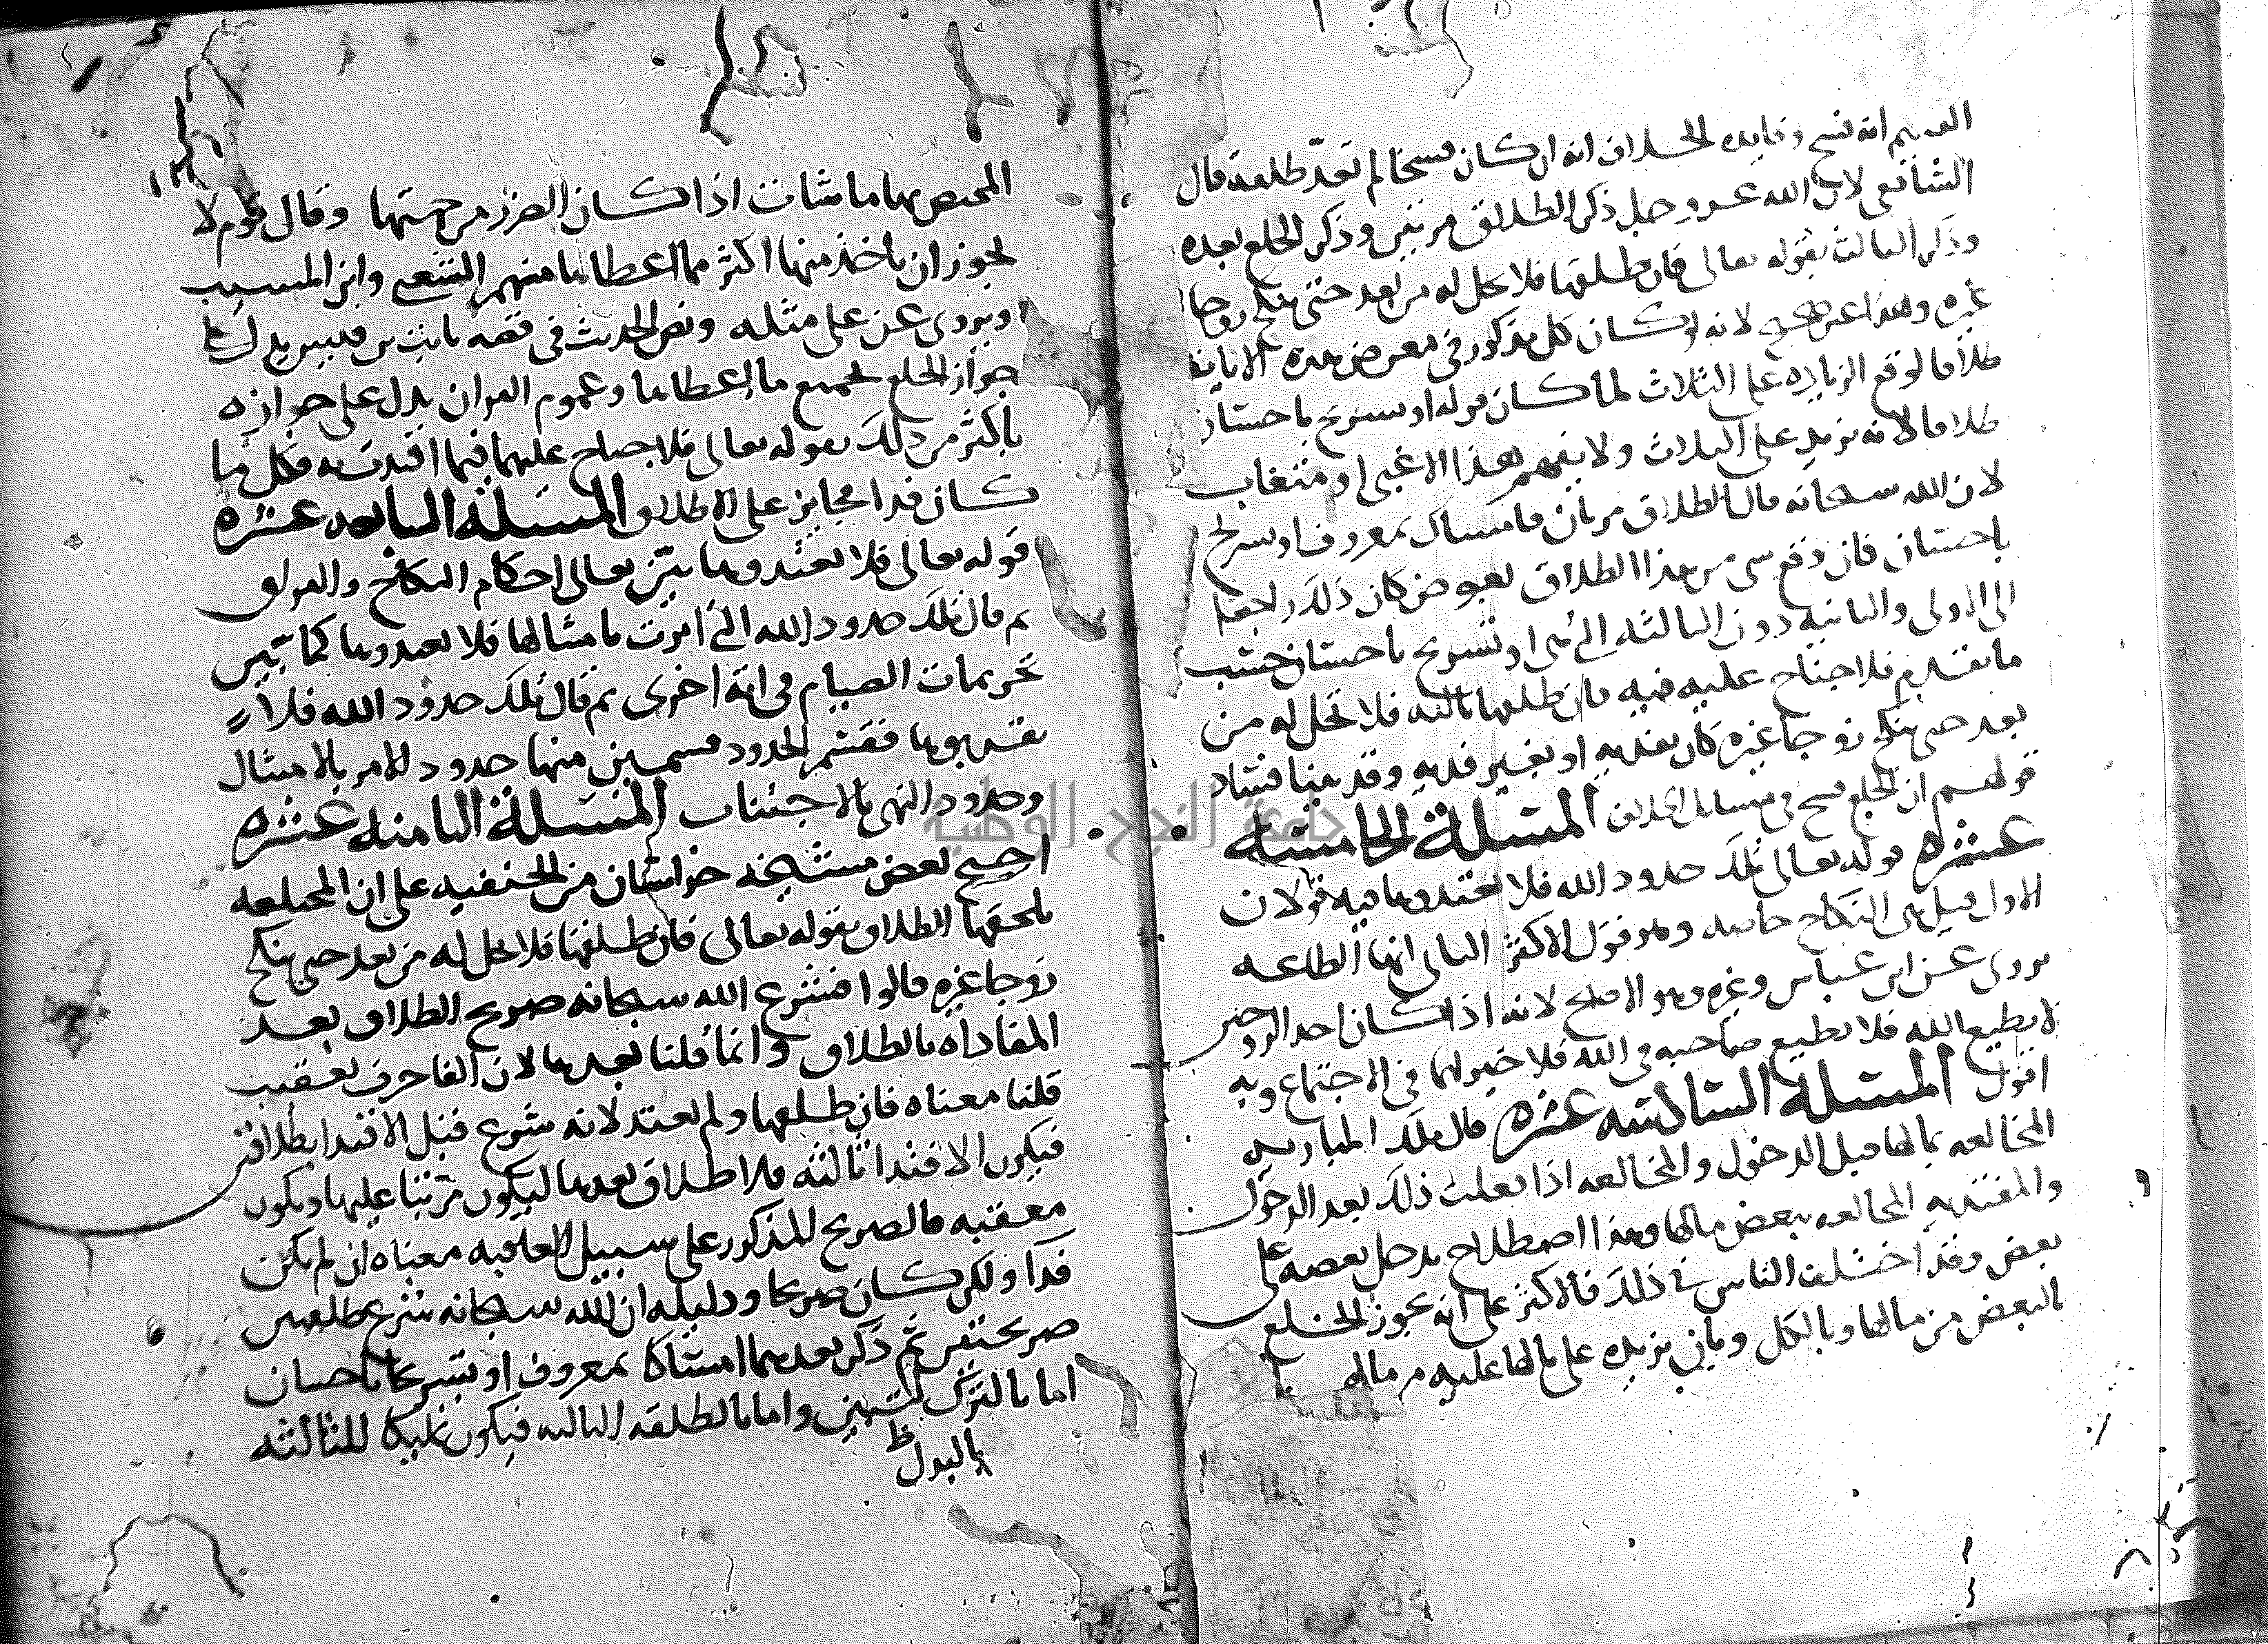 القديم انه فسخ وفايده الخلاف انه ان كان فسخا لم تعدّ طلقه قال
الشافعي لان الله عز وجل ذكر الطلاق مرتين وذكر الخلع بعده
وذكر الثالث بقوله تعالى فان طلقها فلا تحل له من بعد حتى تنكح زوجا
غيره وهذا غير صحيح لانه لو كان كل مذكور في معرض هذه الايات
طلاقا لوقع الزياده على الثلاث لما كان قوله او تسريح باحسان
طلاقا لانه يزيد على الثلاث ولا يفهم هذا الا غبي او متغاب
لان الله سبحانه قال الطلاق مرتان فامساك بمعروف او تسريح
باحسان فان وقع شي من هذا الطلاق بعوض كان ذلك راجعا
الى الاولى والثانيه دون الثالثه التي هي او تسريح باحسان حسب
ما تقدم فلا جناح عليه فيه فان طلقها ثالثه فلا تحل له من
بعد حتى تنكح زوجا غيره كان بفديه او بغير فديه وقد بينا فساد
قولهم ان الخلع فسخ في مسايل الخلاف المسلة الخامسه
عشره قوله تعالى تلك حدود الله فلا تعتدوها فيه قولان
الاول قيل هي النكاح خاصه وهو قول الاكثر الثاني انها الطاعه
يروى عن ابن عباس وغيره وهو الاصح لانه اذا كان احد الزوجين
لا يطيع الله فلا يطيع صاحبه في الله فلا خير لهما في الاجتماع وبه
اقول المسلة السادسه عشره قال ملك المباريه
المخالعه بمالها قبل الدخول والمخالعه اذا فعلت ذلك بعد الدخول
والمفتديه المخالعه ببعض مالها وهذا اصطلاح يدخل بعضه على
بعض وقد اختلف الناس في ذلك فالاكثر على انه يجوز الخلع
بالبعض من مالها وبالكل وبان يزيده على مالها عليه من مالها
المختص بها ما شات اذا كان الضرر من جهتها وقال قوم لا
يجوز ان ياخذ منها اكثر مما اعطاها منهم الشعبي وابن المسيب
ويروى عن علي مثله ونص الحديث في قصه ثابت بن قيس يدل على
جواز الخلع بجميع ما اعطاها وعموم القران يدل على جوازه
باكثر من ذلك بقوله تعالى فلا جناح عليهما فيما افتدت به فكل ما
كان فدا فجايز على الاطلاق المسلة السابعه عشره
قوله تعالى فلا تعتدوها بيّن تعالى احكام النكاح والفراق
ثم قال تلك حدود الله التي امرت بامتثالها فلا تعتدوها كما بيّن
تحريمات الصيام في ايه اخرى ثم قال تلك حدود الله فلا
تقربوها فقسم الحدود قسمين منها حدود الامر بالامتثال
وحدود النهي بالاجتناب المسلة الثامنه عشره
احتج بعض مشيخه خراسان من الحنفيه على ان المختلعه
يلحقها الطلاق بقوله تعالى فان طلقها فلا تحل له من بعد حتى تنكح
زوجا غيره قالوا فشرع الله سبحانه صريح الطلاق بعد
المفاداه بالطلاق وانما قلنا بعدها لان الفا حرف تعقيب
قلنا معناه فان طلقها ولم تفتد لانه شرع قبل الافتدا بطلاقين
فيكون الافتدا ثالثه فلا طلاق بعدها ليكون مرتبا عليها ويكون
معقبه فالصريح المذكور على سبيل المعاقبه معناه ان لم يكن
فدا ولكن كان صريحا ودليله ان الله سبحانه شرع طلقتين
صريحتين ثم ذكر بعدهما امساكا بمعروف او تسريحا باحسان
اما بالترك لتبين واما بالطلقه الثالثه فيكون تمليكا للثالثه
بالبدل
جامعة النجاح الوطنية